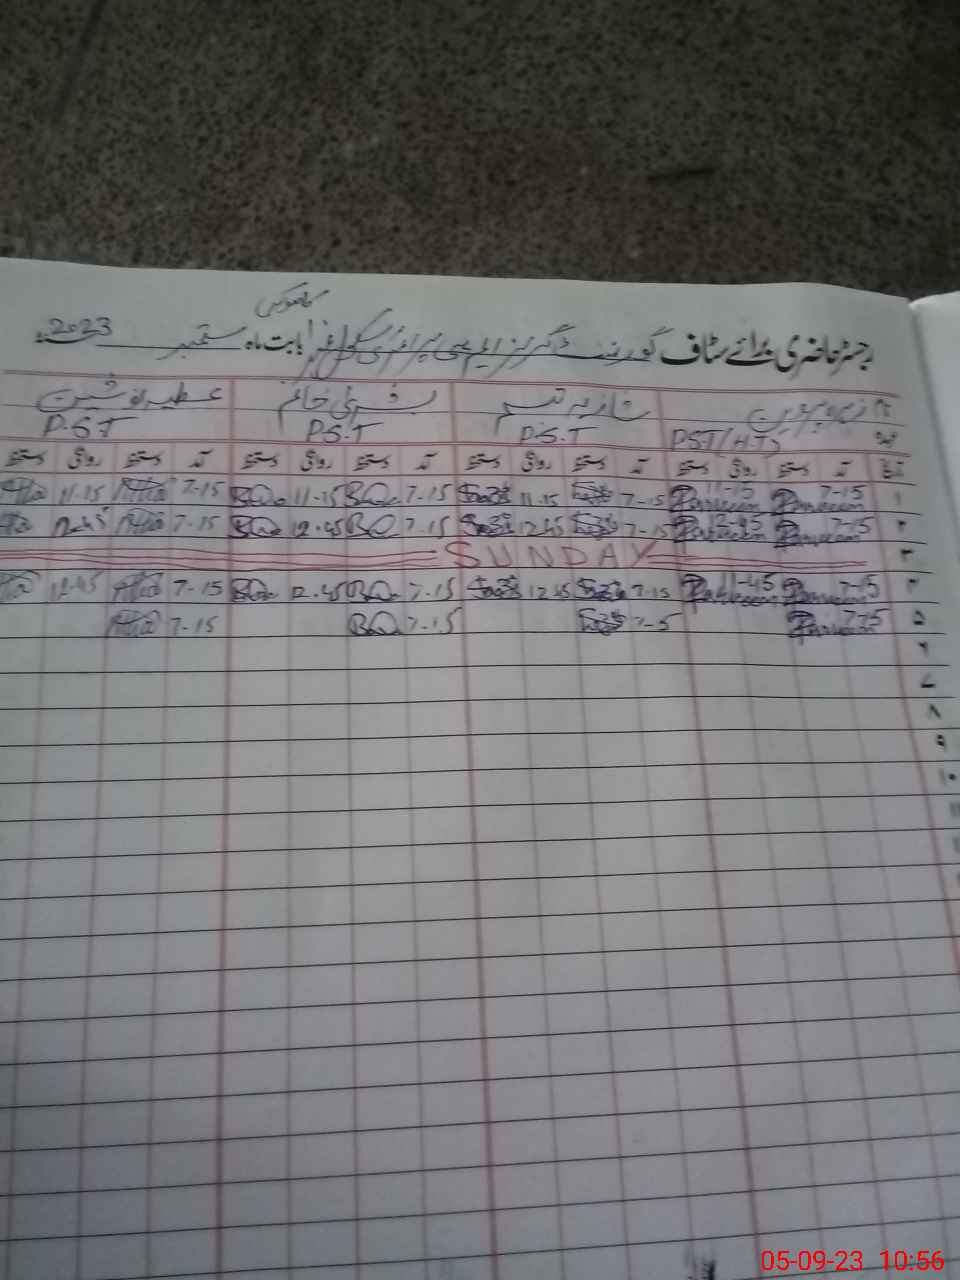 کاموکی
رجسٹر حاضری برائے سٹاف گورنمنٹ گرلز ایم سی پرائمری سکول نمبر1 بابت ماہ ستمبر 2023
نام زہرہ پروین شازیہ تبسم بشریٰ خانم عطیہ نوشین
عہدہ PST/H.T P.S.T P.S.T P.S.T
تاریخ آمد دستخط روانگی دستخط آمد دستخط روانگی دستخط آمد دستخط روانگی دستخط آمد دستخط روانگی دستخط
۱ 7-15 Parveen 11-15 Parveen 7-15 11.15 7-15 BQ 11-15 BQ 7-15 11-15
۲ 7-15 Parveen 12-45 Parveen 7-15 12.45 7-15 BQ 12.45 BQ 7-15 12-45
۳ SUNDAY
۴ 7-15 Parveen 11-45 Parveen 7-15 12.45 7-15 BQ 12.45 BQ 7-15 12-45
۵ 7-15 Parveen 7-5 7-15 BQ 7-15
۶
۷
۸
۹
۱۰
05-09-23 10:56